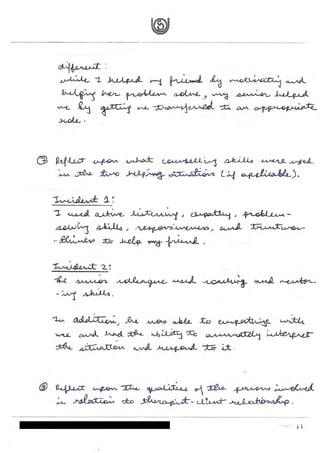 different:
while I helped my friend by motivating and
helping her problem solve, my senior helped
me by getting me transferred to an appropriate
role.
⑦ Reflect upon what counselling skills were used
in the two helping situations (if applicable).
Incident 1:
I used active listening, empathy, problem-
solving skills, responsiveness, and trustwor-
-thiness to help my friend.
Incident 2:
The senior colleague used coaching and mentor-
-ing skills.
In addition, he was able to empathize with
me and had the ability to accurately interpret
the situation and respond to it.
⑧ Reflect upon the qualities of the persons involved
in relation to therapist-client relationship.